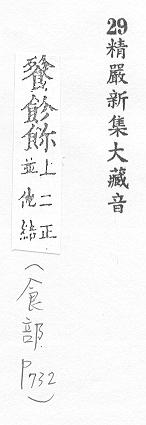 29精嚴新集大藏音
餮飻
上二正
並他結
(食部 P732)